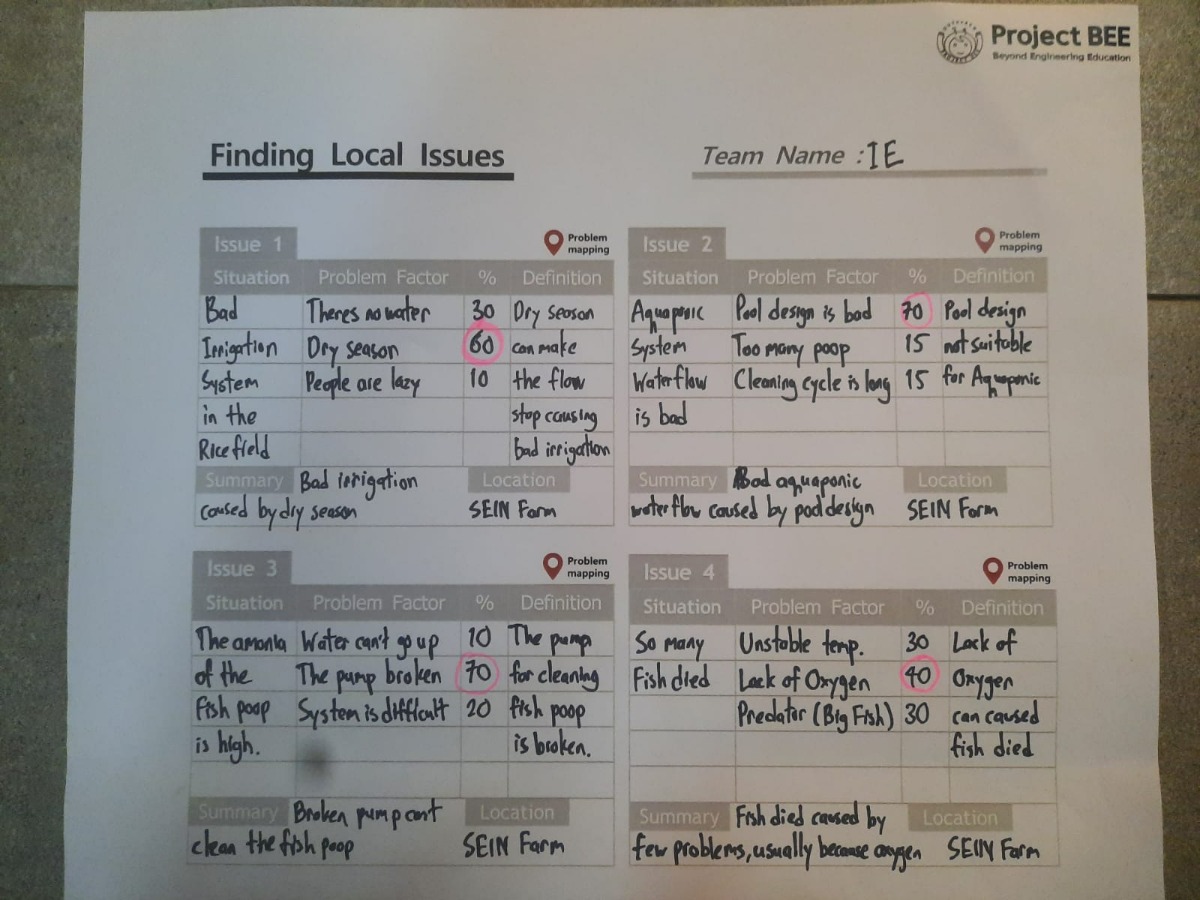 Project BEE
Beyond Engineering Education
Finding Local Issues
Team Name : IE
Issue 1
Problem mapping
Situation Problem Factor % Definition
Bad Theres no water 30 Dry season
Irrigation Dry season 60 can make
System People are lazy 10 the flow
in the stop causing
Rice field bad irrigation
Summary Bad irrigation Location
caused by dry season SEIN Farm
Issue 2
Problem mapping
Situation Problem Factor % Definition
Aquaponic Pool design is bad 70 Pool design
System Too many poop 15 not suitable
Waterflow Cleaning cycle is long 15 for Aquaponic
is bad
Summary Bad aquaponic Location
waterflow caused by pool design SEIN Farm
Issue 3
Problem mapping
Situation Problem Factor % Definition
The amonia Water can't go up 10 The pump
of the The pump broken 70 for cleaning
fish poop System is difficult 20 fish poop
is high. is broken.
Summary Broken pump cant Location
clean the fish poop SEIN Farm
Issue 4
Problem mapping
Situation Problem Factor % Definition
So many Unstable temp. 30 Lack of
Fish died Lack of Oxygen 40 Oxygen
Predator (Big Fish) 30 can caused
fish died
Summary Fish died caused by Location
few problems, usually because oxygen SEIN Farm